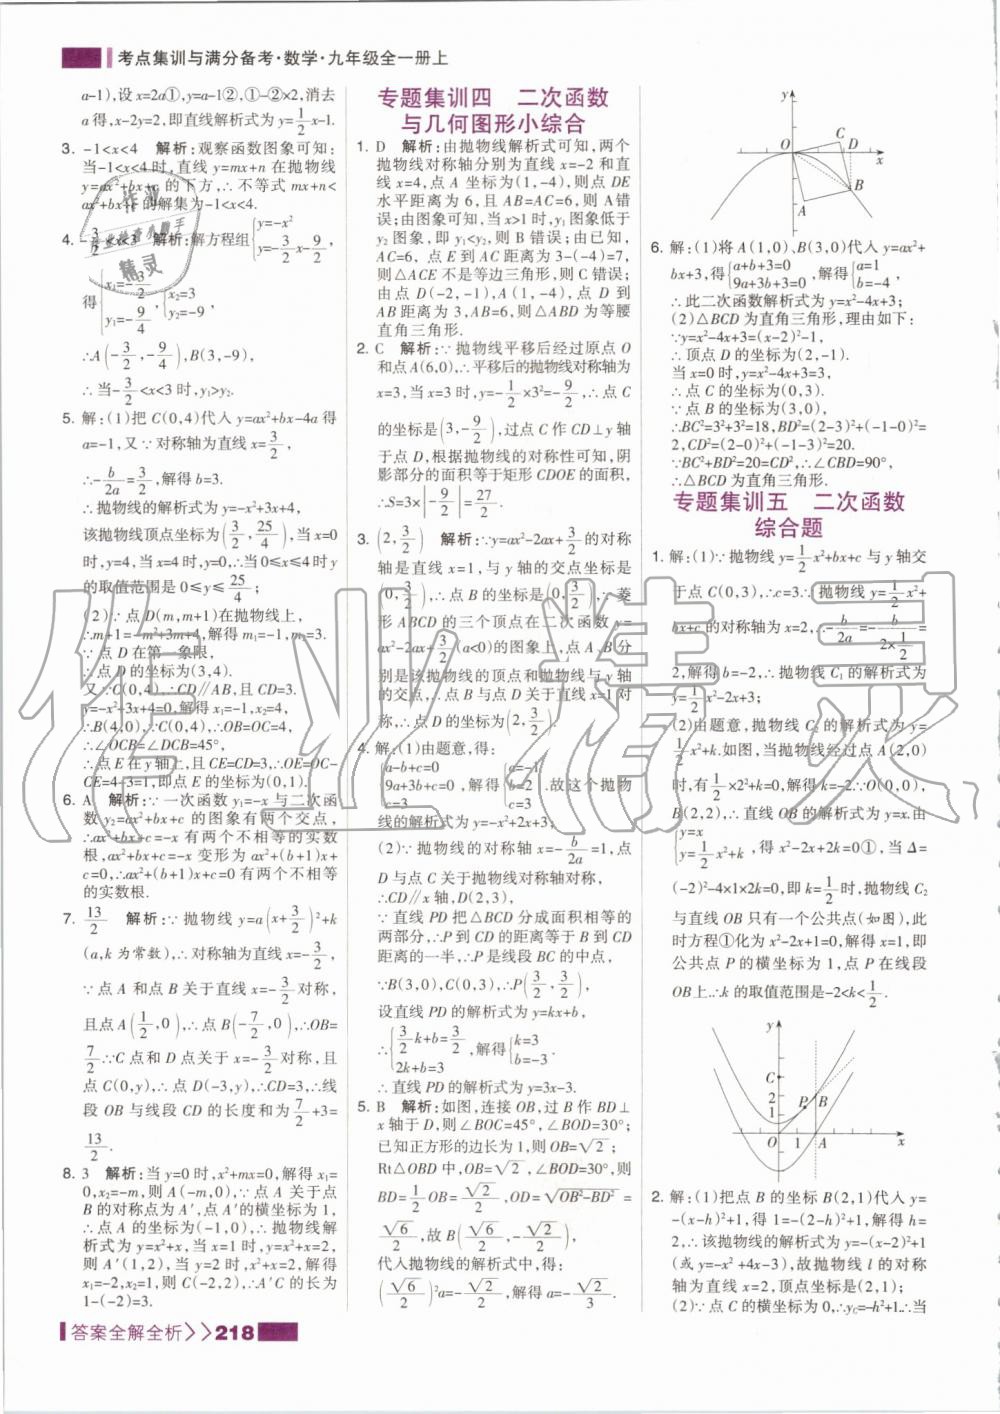 考点集训与满分备考·数学·九年级全一册上
a-1),设x=2a①,y=a-1②,①-②×2,消去
a得,x-2y=2,即直线解析式为y=1/2x-1.
3. -1<x<4 解析:观察函数图象可知:
当-1<x<4时,直线y=mx+n在抛物线
y=ax²+bx+c的下方,∴不等式mx+n<
ax²+bx+c的解集为-1<x<4.
4. -3/2<x<3 解析:解方程组{y=-x² y=-3/2x-9/2,
得{x₁=-3/2 y₁=-9/4,{x₂=3 y₂=-9,
∴A(-3/2,-9/4),B(3,-9),
∴当-3/2<x<3时,y₁>y₂.
5. 解:(1)把C(0,4)代入y=ax²+bx-4a得
a=-1,又∵对称轴为直线x=3/2,
∴-b/2a=3/2,解得b=3.
∴抛物线的解析式为y=-x²+3x+4,
该抛物线顶点坐标为(3/2,25/4),当x=0
时,y=4,当x=4时,y=0,∴当0≤x≤4时y
的取值范围是0≤y≤25/4;
(2)∵点D(m,m+1)在抛物线上,
∴m+1=-m²+3m+4,解得m₁=-1,m₂=3.
∵点D在第一象限,
∴点D的坐标为(3,4).
又∵C(0,4),∴CD∥AB,且CD=3.
y=-x²+3x+4=0,解得x₁=-1,x₂=4,
∴B(4,0),∵C(0,4),∴OB=OC=4,
∴∠OCB=∠DCB=45°,
∴点E在y轴上,且CE=CD=3,∴OE=OC-
CE=4-3=1,即点E的坐标为(0,1).
6. A 解析:∵一次函数y₁=-x与二次函
数y₂=ax²+bx+c的图象有两个交点,
∴ax²+bx+c=-x有两个不相等的实数
根,ax²+bx+c=-x变形为ax²+(b+1)x+
c=0,∴ax²+(b+1)x+c=0有两个不相等
的实数根.
7. 13/2 解析:∵抛物线y=a(x+3/2)²+k
(a,k为常数),∴对称轴为直线x=-3/2,
∵点A和点B关于直线x=-3/2对称,
且点A(1/2,0),∴点B(-7/2,0),∴OB=
7/2.∵C点和D点关于x=-3/2对称,且
点C(0,y),∴点D(-3,y),∴CD=3,∴线
段OB与线段CD的长度和为7/2+3=
13/2.
8. 3 解析:当y=0时,x²+mx=0,解得x₁=
0,x₂=-m,则A(-m,0),∵点A关于点
B的对称点为A′,点A′的横坐标为1,
∴点A的坐标为(-1,0),∴抛物线解
析式为y=x²+x,当x=1时,y=x²+x=2,
则A′(1,2),当y=2时,x²+x=2,解得
x₁=-2,x₂=1,则C(-2,2),∴A′C的长为
1-(-2)=3.
答案全解全析>>218
专题集训四 二次函数
与几何图形小综合
1. D 解析:由抛物线解析式可知,两个
抛物线对称轴分别为直线x=-2和直
线x=4,点A坐标为(1,-4),则点DE
水平距离为6,且AB=AC=6,则A错
误;由图象可知,当x>1时,y₁图象低于
y₂图象,即y₁<y₂,则B错误;由已知,
AC=6,点E到AC距离为3-(-4)=7,
则△ACE不是等边三角形,则C错误;
由点D(-2,-1),A(1,-4),点D到
AB距离为3,AB=6,则△ABD为等腰
直角三角形.
2. C 解析:∵抛物线平移后经过原点O
和点A(6,0),∴平移后的抛物线对称轴为
x=3,当x=3时,y=-1/2×3²=-9/2,∴点C
的坐标是(3,-9/2),过点C作CD⊥y轴
于点D,根据抛物线的对称性可知,阴
影部分的面积等于矩形CDOE的面积,
∴S=3×|-9/2|=27/2.
3. (2,3/2) 解析:∵y=ax²-2ax+3/2的对称
轴是直线x=1,与y轴的交点坐标是
(0,3/2),∴点B的坐标是(0,3/2),∴菱
形ABCD的三个顶点在二次函数y=
ax²-2ax+3/2(a<0)的图象上,点A、B分
别是该抛物线的顶点和抛物线与y轴
的交点,∴点B与点D关于直线x=1对
称,∴点D的坐标为(2,3/2).
4. 解:(1)由题意,得:
{a-b+c=0 9a+3b+c=0 c=3,解得{a=-1 b=2 c=3.故这个抛物
线的解析式为y=-x²+2x+3;
(2)∵抛物线的对称轴x=-b/2a=1,点
D与点C关于抛物线对称轴对称,
∴CD∥x轴,D(2,3),
∵直线PD把△BCD分成面积相等的
两部分,∴P到CD的距离等于B到CD
距离的一半,∴P是线段BC的中点,
∵B(3,0),C(0,3),∴P(3/2,3/2),
设直线PD的解析式为y=kx+b,
∴{3/2k+b=3/2 2k+b=3,解得{k=3 b=-3.
∴直线PD的解析式为y=3x-3.
5. B 解析:如图,连接OB,过B作BD⊥
x轴于D,则∠BOC=45°,∠BOD=30°;
已知正方形的边长为1,则OB=√2;
Rt△OBD中,OB=√2,∠BOD=30°,则
BD=1/2OB=√2/2,OD=√(OB²-BD²)=
√6/2,故B(√6/2,-√2/2),
代入抛物线的解析式中,得:
(√6/2)²a=-√2/2,解得a=-√2/3.
y
O
C
D
x
B
A
6. 解:(1)将A(1,0)、B(3,0)代入y=ax²+
bx+3,得{a+b+3=0 9a+3b+3=0,解得{a=1 b=-4,
∴此二次函数解析式为y=x²-4x+3;
(2)△BCD为直角三角形,理由如下:
∵y=x²-4x+3=(x-2)²-1,
∴顶点D的坐标为(2,-1).
当x=0时,y=x²-4x+3=3,
∴点C的坐标为(0,3).
∵点B的坐标为(3,0),
∴BC²=3²+3²=18,BD²=(2-3)²+(-1-0)²=
2,CD²=(2-0)²+(-1-3)²=20.
∵BC²+BD²=20=CD²,∴∠CBD=90°,
∴△BCD为直角三角形.
专题集训五 二次函数
综合题
1. 解:(1)∵抛物线y=1/2x²+bx+c与y轴交
于点C(0,3),∴c=3.∴抛物线y=1/2x²+
bx+c的对称轴为x=2,∴-b/2a=-b/(2×1/2)=
2,解得b=-2,∴抛物线C₁的解析式为
y=1/2x²-2x+3;
(2)由题意,抛物线C₂的解析式为y=
1/2x²+k.如图,当抛物线经过点A(2,0)
时,有1/2×2²+k=0,解得k=-2.∵O(0,0),
B(2,2),∴直线OB的解析式为y=x.由
{y=x y=1/2x²+k,得x²-2x+2k=0①,当Δ=
(-2)²-4×1×2k=0,即k=1/2时,抛物线C₂
与直线OB只有一个公共点(如图),此
时方程①化为x²-2x+1=0,解得x=1,即
公共点P的横坐标为1,点P在线段
OB上.∴k的取值范围是-2<k<1/2.
y
C
2
1
P
B
O
1
A
x
2. 解:(1)把点B的坐标B(2,1)代入y=
-(x-h)²+1,得1=-(2-h)²+1,解得h=
2,∴该抛物线的解析式为y=-(x-2)²+1
(或y=-x²+4x-3),故抛物线l的对称
轴为直线x=2,顶点坐标是(2,1);
(2)∵点C的横坐标为0,∴y_C=-h²+1.∴当
作业精灵